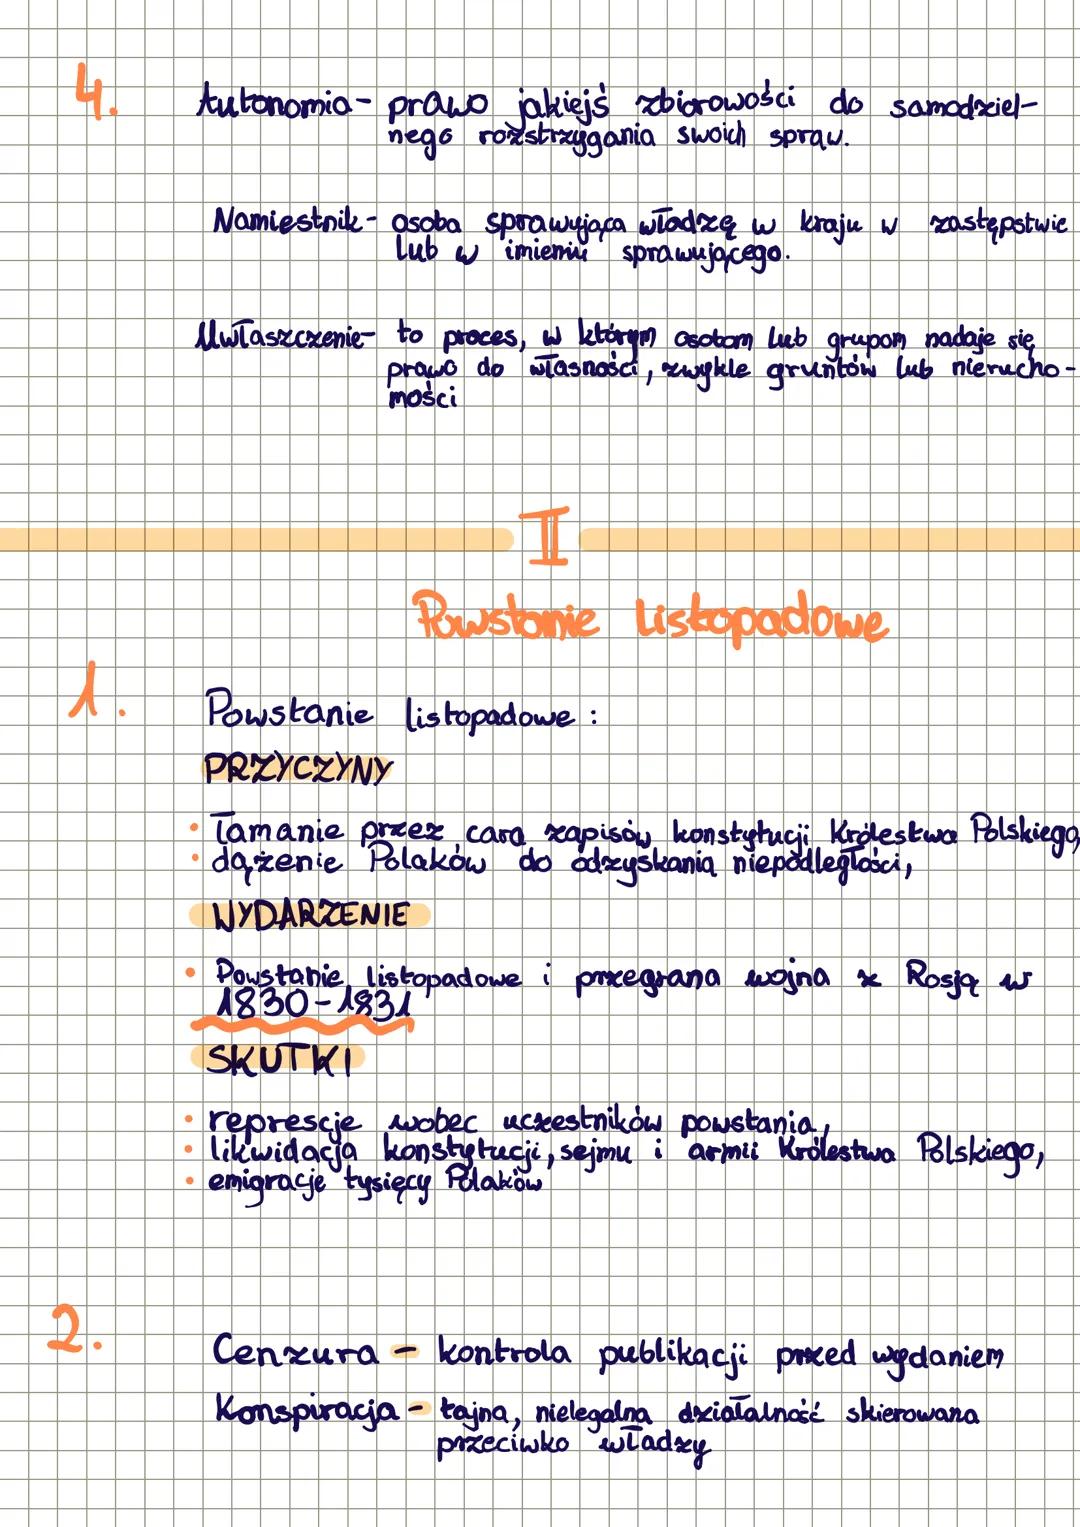 4.
Autonomia - prawo jakiejś zbiorowości do samodziel-
nego rozstrzygania swoich spraw.
Namiestnik - osoba sprawująca władzę w kraju w zastępstwie
lub w imieniu sprawującego.
Uwłaszczenie - to proces, w którym osobom lub grupom nadaje się
prawo do własności, zwykle gruntów lub nierucho-
mości
II
Powstanie Listopadowe
1.
Powstanie listopadowe :
PRZYCZYNY
• łamanie przez cara zapisów konstytucji Królestwa Polskiego,
• dążenie Polaków do odzyskania niepodległości,
WYDARZENIE
• Powstanie listopadowe i przegrana wojna z Rosją w
1830-1831
SKUTKI
• represje wobec uczestników powstania,
• likwidacja konstytucji, sejmu i armii Królestwa Polskiego,
• emigracje tysięcy Polaków
2.
Cenzura - kontrola publikacji przed wydaniem
Konspiracja - tajna, nielegalna działalność skierowana
przeciwko władzy